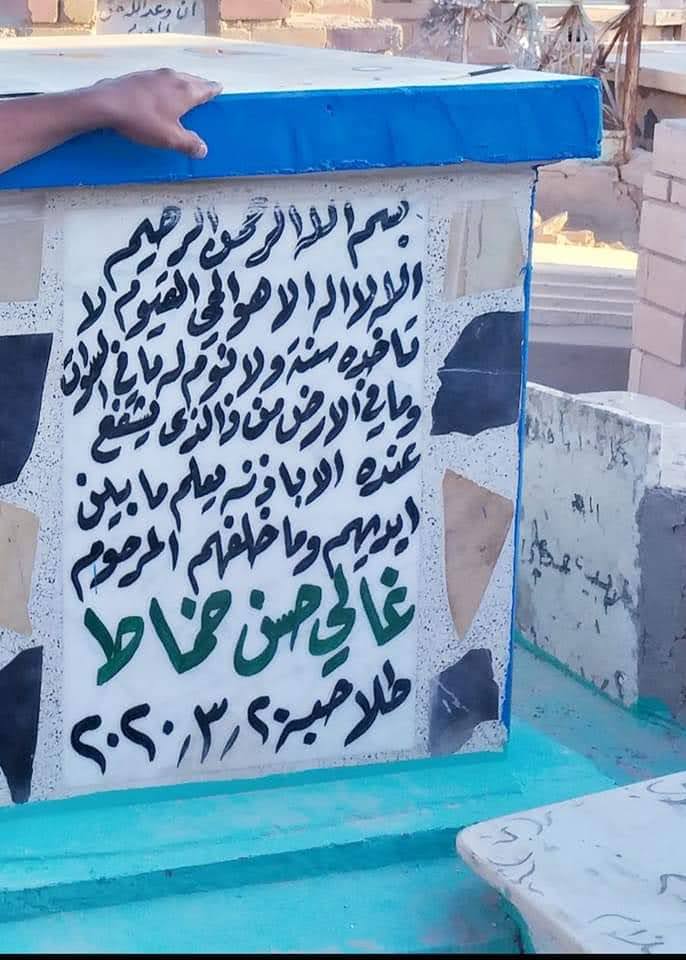 ان وعد الله حق
بسم الله الرحمن الرحيم
الله لا اله الا هو الحي القيوم لا
تاخذه سنة ولا نوم له ما في السموات
وما في الارض من ذا الذي يشفع
عنده الا باذنه يعلم ما بين
ايديهم وما خلفهم المرحوم
غالي حسن خماط
طلاحبة ٢٠٢٠٫٣٫٢٠